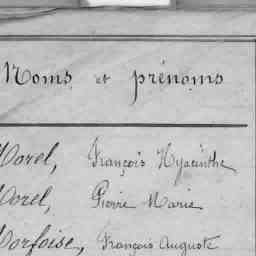 Noms et prénoms
Morel, François Hyacinthe
Morel, Pierre Marie
Morfoise, François Auguste